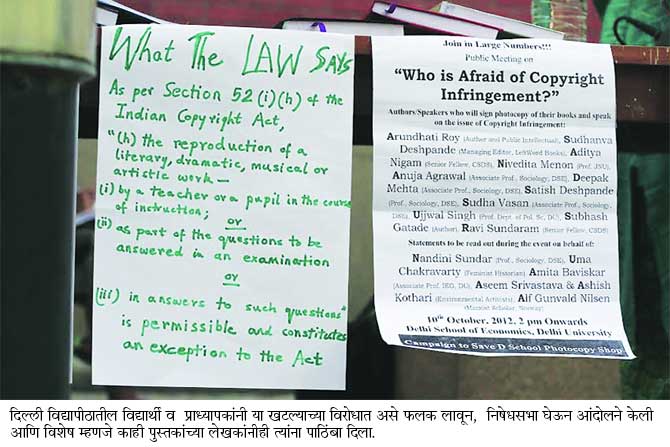 What The LAW SAYS
As per Section 52 (i)(h) of the
Indian Copyright Act,
"(h) the reproduction of a
literary, dramatic, musical or
artistic work—
(i) by a teacher or a pupil in the course
of instruction;
or
(ii) as part of the questions to be
answered in an examination
or
(iii) in answers to such questions"
is permissible and constitutes
an exception to the Act
Join in Large Numbers!!!
Public Meeting on
"Who is Afraid of Copyright
Infringement?"
Authors/Speakers who will sign photocopy of their books and speak
on the issue of Copyright Infringement:
Arundhati Roy (Author and Public Intellectual), Sudhanva
Deshpande (Managing Editor, LeftWord Books), Aditya
Nigam (Senior Fellow, CSDS), Nivedita Menon (Prof. JNU),
Anuja Agrawal (Associate Prof., Sociology, DSE), Deepak
Mehta (Associate Prof., Sociology, DSE), Satish Deshpande
(Prof., Sociology, DSE), Sudha Vasan (Associate Prof., Sociology,
DSE), Ujjwal Singh (Prof. Dept. of Pol. Sc, DU), Subhash
Gatade (Author), Ravi Sundaram (Senior Fellow, CSDS)
Statements to be read out during the event on behalf of:
Nandini Sundar (Prof., Sociology, DSE), Uma
Chakravarty (Feminist Historian), Amita Baviskar
(Associate Prof, IEG, DU), Aseem Srivastava & Ashish
Kothari (Environmental Activists), Alf Gunvald Nilsen
(Marxist Scholar, Norway)
10th October, 2012, 2 pm Onwards
Delhi School of Economics, Delhi University
Campaign to Save D School Photocopy Shop
दिल्ली विद्यापीठातील विद्यार्थी व प्राध्यापकांनी या खटल्याच्या विरोधात असे फलक लावून, निषेधसभा घेऊन आंदोलने केली
आणि विशेष म्हणजे काही पुस्तकांच्या लेखकांनीही त्यांना पाठिंबा दिला.